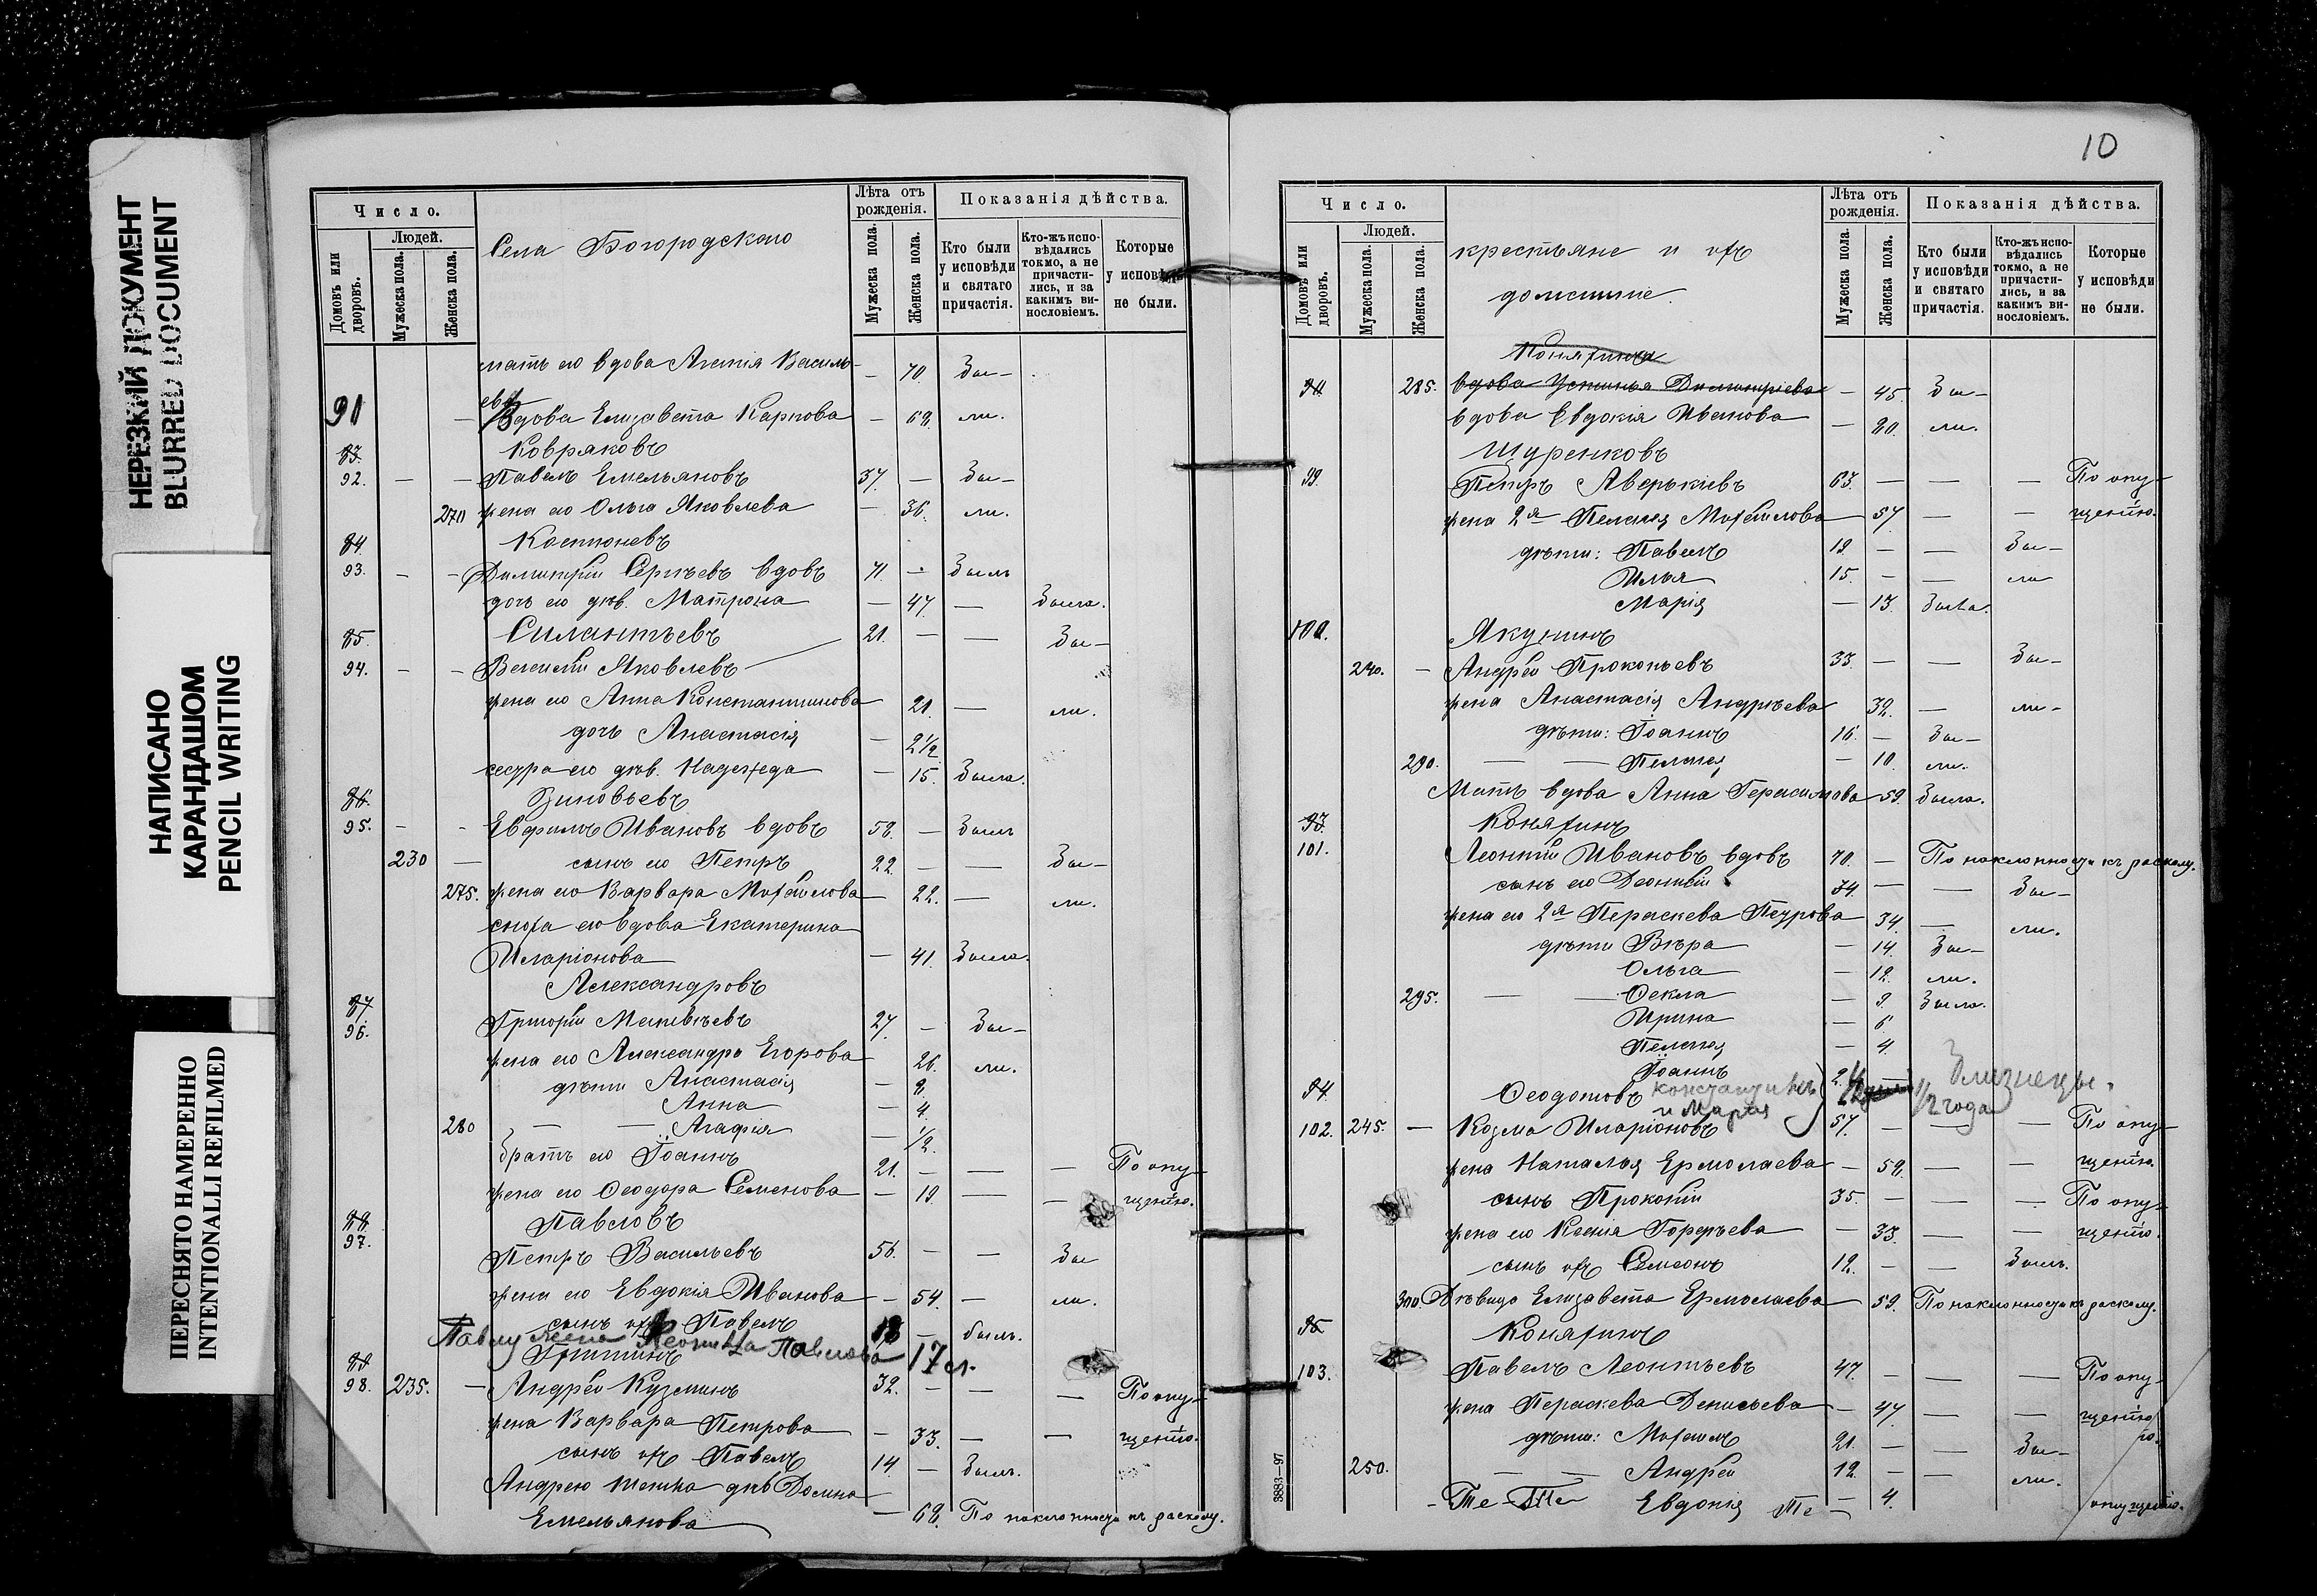 НЕРЕЗКИЙ ДОКУМЕНТ
BLURRED DOCUMENT
НАПИСАНО
КАРАНДАШОМ
PENCIL WRITING
ПЕРЕСНЯТО НАМЕРЕННО
INTENTIONALLI REFILMED
Число.
Домовъ или дворовъ.
Людей.
Мужеска пола.
Женска пола.
Села Богородскаго
Лѣта отъ рожденія.
Мужеска пола.
Женска пола.
Показанія дѣйства.
Кто были у исповѣди и святаго причастія.
Кто-жъ исповѣдались токмо, а не причастились, и за какимъ винословіемъ.
Которые у исповѣди не были.
мать его вдова Агапія Василь- — 70. Бы-
ева
91 — Вдова Елизавета Карпова — 68. ли.
83. Ковряковъ
92. — — Павелъ Емельяновъ 37. — Бы-
270 жена его Ольга Яковлева — 36. ли.
84. Костюневъ
93. — — Димитрій Сергѣевъ вдовъ 71. — Былъ
дочь его дѣв. Матрона — 47. — Была.
85. Силантьевъ 21. — — Бы-
94. — — Василій Яковлевъ
жена его Анна Константинова 21. — ли.
дочь Анастасія — 2 1/2
сестра его дѣв. Надежда — 15. Была.
86. Зиновьевъ
95. — — Евфимъ Ивановъ вдовъ 58. — Былъ
230 — сынъ его Петръ 22. — — Бы-
275. жена его Варвара Михайлова — 22. — ли.
сноха его вдова Екатерина
Иларіонова — 41. Была.
Александровъ
87.
96. Григорій Матвѣевъ 27. — Бы-
жена его Александра Егорова — 26. ли.
дѣти Анастасія — 8.
Анна — 4.
280 — — Агафія — 1/2.
братъ его Іоаннъ 21. — — — По опу-
жена его Ѳеодора Семенова — 19 — — щенію.
88. Павловъ
97.
Петръ Васильевъ 56. — — Бы
жена его Евдокія Иванова — 54. — ли.
сынъ ихъ Павелъ 18 — былъ.
Павлу жена Павлова 17 л.
89. Гришинъ
98. 235. — Андрей Кузминъ 32. — — — По опу-
жена Варвара Петрова — 33. — — щенію.
сынъ ихъ Павелъ 14 — Былъ.
Андрею тетка дѣв Домна
Емельянова — 68. По наклонности къ расколу.
10
Число.
Домовъ или дворовъ.
Людей.
Мужеска пола.
Женска пола.
крестьяне и ихъ
домашніе.
Лѣта отъ рожденія.
Мужеска пола.
Женска пола.
Показанія дѣйства.
Кто были у исповѣди и святаго причастія.
Кто-жъ исповѣдались токмо, а не причастились, и за какимъ винословіемъ.
Которые у исповѣди не были.
Коняхина
285. вдова Устинья Димитріева — 45. Бы-
вдова Евдокія Иванова — 80. ли.
Шуренковъ
99. Петръ Аверькіевъ 63. — — — По опу-
жена 2я Пелагія Михайлова 57 — — щенію.
дѣти: Павелъ 19 — — Бы-
Илья 15. — — ли
Марія — 13. Была.
100. Якунинъ
240. — Андрей Прокопьевъ 33. — — Бы-
жена Анастасія Андрѣева 32. — ли-
дѣти: Іоаннъ 16. — Бы-
290. — — Пелагія — 10. ли.
Мать вдова Анна Герасимова 59. Была.
93. Коняхинъ
101.
Леонтій Ивановъ вдовъ 70. — По наклонности къ расколу.
сынъ его Діонисій 34. — — Бы-
жена его 2я Параскева Петрова 34. — ли.
дѣти Вѣра — 14. Бы-
Ольга — 12. ли.
295. — — Ѳекла — 9. Была.
Ирина — 6.
Пелагія — 4.
Іоаннъ 2.
94. Ѳеодотовъ Константинъ и Марія 1/2 года Близнецы.
102. 245. — Козма Иларіоновъ 57. — — — По опу-
жена Наталія Ермолаева — 58. — — щенію.
сынъ Прокопій 35. — — — По опу-
жена его Ксенія Гордѣева — 33. — — щенію.
сынъ ихъ Симеонъ 12. — — Былъ.
300 Дѣвица Елизавета Ермолаева 59. По наклонности къ расколу.
95. Коняхинъ
103. Павелъ Леонтьевъ 47. — — — По опу-
жена Параскева Денисьева — 47. — — щенію
дѣти: Михаилъ 21. — — Бы-
250. — — Андрей 12. — — ли.
Евдокія — 4. опущенію.
3883—97